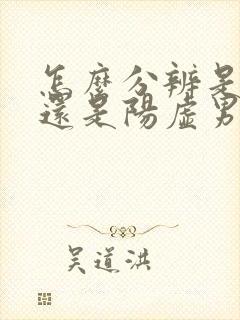 怎麼分辨是
還是陽虛男
吳道洪